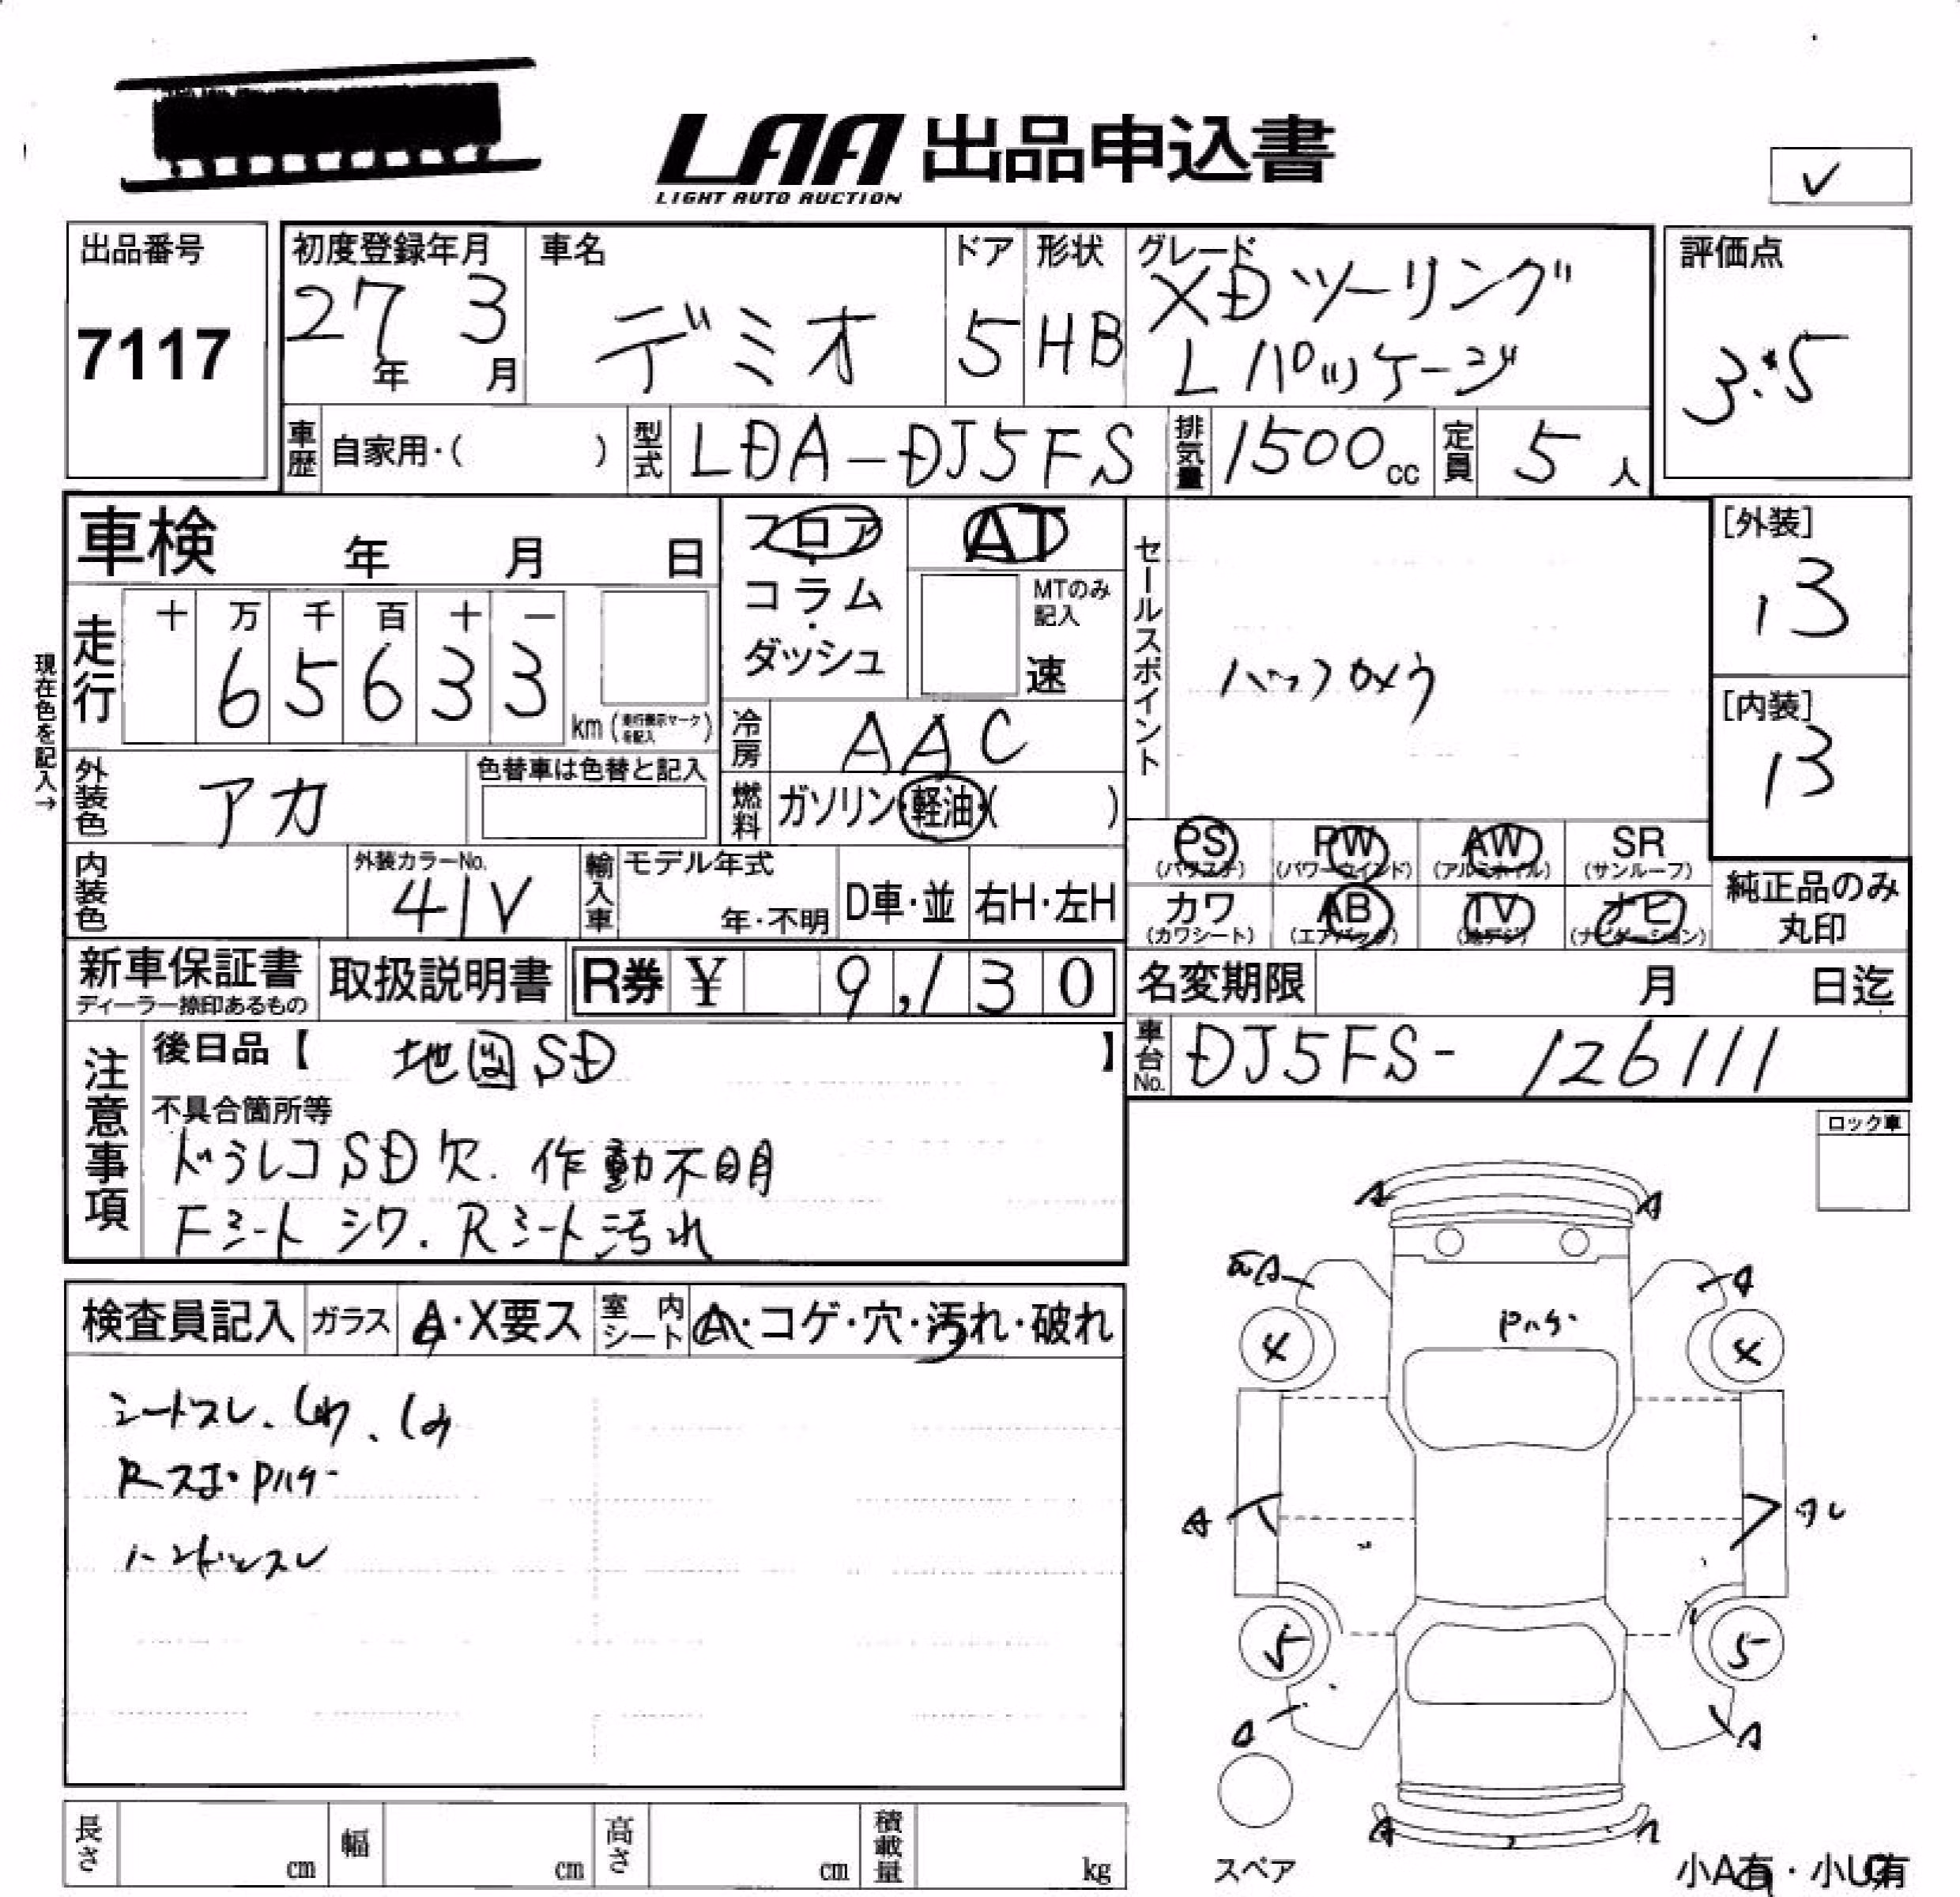 LAA 出品申込書
LIGHT AUTO AUCTION
✓
出品番号
7117
初度登録年月
27年 3月
車名
デミオ
ドア
5
形状
HB
グレード
XDツーリング
Lパッケージ
評価点
3.5
車歴 自家用・( )
型式 LDA-DJ5FS
排気量 1500cc
定員 5人
車検 年 月 日
フロア・コラム・ダッシュ
AT
MTのみ記入
速
セールスポイント
バックカメラ
[外装]
13
[内装]
13
現在色を記入→
走行
十 万 千 百 十 一
6 5 6 3 3
km(走行表示マークを記入)
冷房 AAC
外装色 アカ
色替車は色替と記入
燃料 ガソリン・軽油・( )
PS (パワステ)
PW (パワーウインド)
AW (アルミホイル)
SR (サンルーフ)
カワ (カワシート)
AB (エアバック)
TV (地デジ)
ナビ (ナビゲーション)
純正品のみ丸印
内装色
外装カラーNo.
41V
輸入車
モデル年式
年・不明
D車・並
右H・左H
新車保証書
ディーラー捺印あるもの
取扱説明書
R券 ¥ 9,130
名変期限 月 日迄
車台No. DJ5FS-126111
注意事項
後日品【 地図SD 】
不具合箇所等
ドラレコSD欠.作動不明
Fシートシワ.Rシート汚れ
ロック車
検査員記入
ガラス A・X要ス
室内シート A・コゲ・穴・汚れ・破れ
シートスレ、しわ、しみ
Rスポ・Pハゲ
ハンドルスレ
A A
A
A
Pハゲ
4 4
A
スレ
5 5
A
A A
スペア
小A有・小U有
長さ cm
幅 cm
高さ cm
積載量 kg